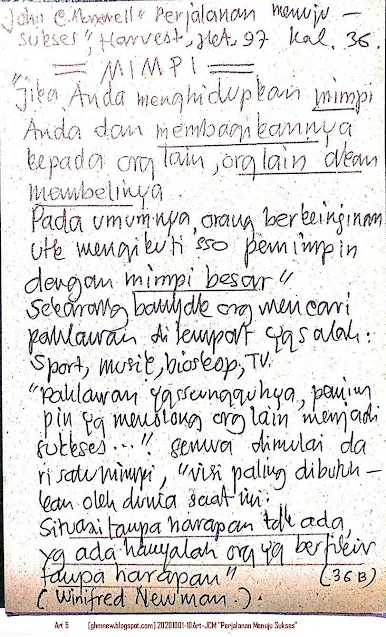 John C. Maxwell" Perjalanan menuju -
sukses", Harvest, Jkt, 97 hal. 36.
= MIMPI =
"Jika Anda menghidupkan mimpi
Anda dan membagikannya
kepada org lain, org lain akan
membelinya.
Pada umumnya, orang berkeinginan
utk mengikuti sso pemimpin
dengan mimpi besar"
Sekarang banyak org mencari
pahlawan di tempat yg salah:
Sport, musik, bioskop, TV.
"Pahlawan yg sesungguhnya, pemim
pin yg menolong org lain menjadi
sukses..." Semua dimulai da
ri satu mimpi, "visi paling dibutuh-
kan oleh dunia saat ini.
Situasi tanpa harapan tdk ada,
yg ada hanyalah org yg berfikir
tanpa harapan" (36B)
(Winifred Newman.)
Art 5 [ghmnew.blogspot.com] 20201001-10Art-JCM "Perjalanan Menuju Sukses"